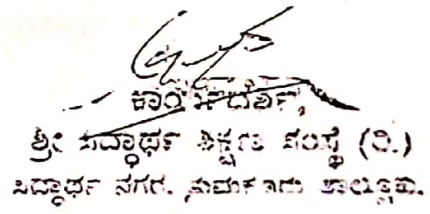 ಕಾರ್ಯದರ್ಶಿ,
ಶ್ರೀ ಸಿದ್ಧಾರ್ಥ ಶಿಕ್ಷಣ ಸಂಸ್ಥೆ (ರಿ.)
ಸಿದ್ಧಾರ್ಥ ನಗರ, ತುಮಕೂರು ತಾಲ್ಲೂಕು.